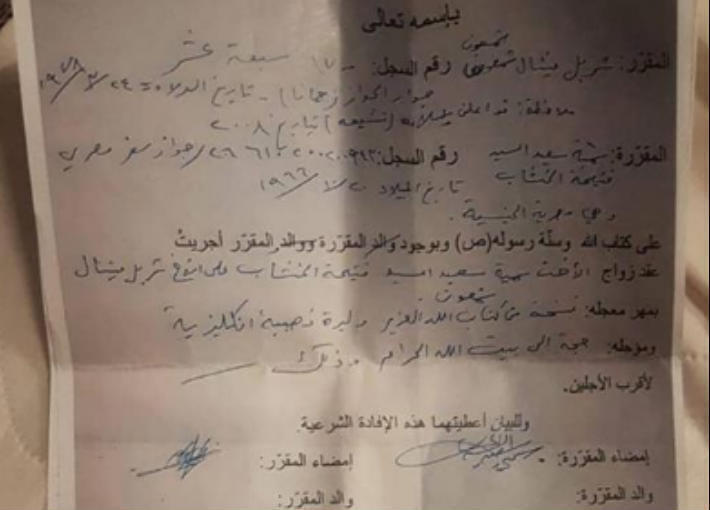 باسمه تعالى
شمعون
المقرّر: شربل ميشال شمعون رقم السجل: ١٧ - سبعة عشر
جوار الجوز (زحمانا) - تاريخ الولادة ٢٤/٧/١٩٧٨
ملاحظة: قد اعلن إسلامه (تشيعه) بتاريخ ٢٠٠٨
المقرّرة: سمية سعيد السيد رقم السجل: جواز سفر مصري
فتيحة الخشاب تاريخ الميلاد ١٩٦٦
وهي مصرية الجنسية.
على كتاب الله وسنّة رسوله(ص) وبوجود والد المقرّرة ووالد المقرّر أجريتُ
عقد زواج الأخت سمية سعيد السيد فتيحة الخشاب على الأخ شربل ميشال
شمعون
بمهر معجله: نسخة من كتاب الله العزيز وليرة ذهبية انكليزية
ومؤجله: حجة الى بيت الله الحرام وذلك
لأقرب الأجلين.
وللبيان أعطيتهما هذه الإفادة الشرعية.
إمضاء المقرّرة: إمضاء المقرّر:
والد المقرّرة: والد المقرّر: